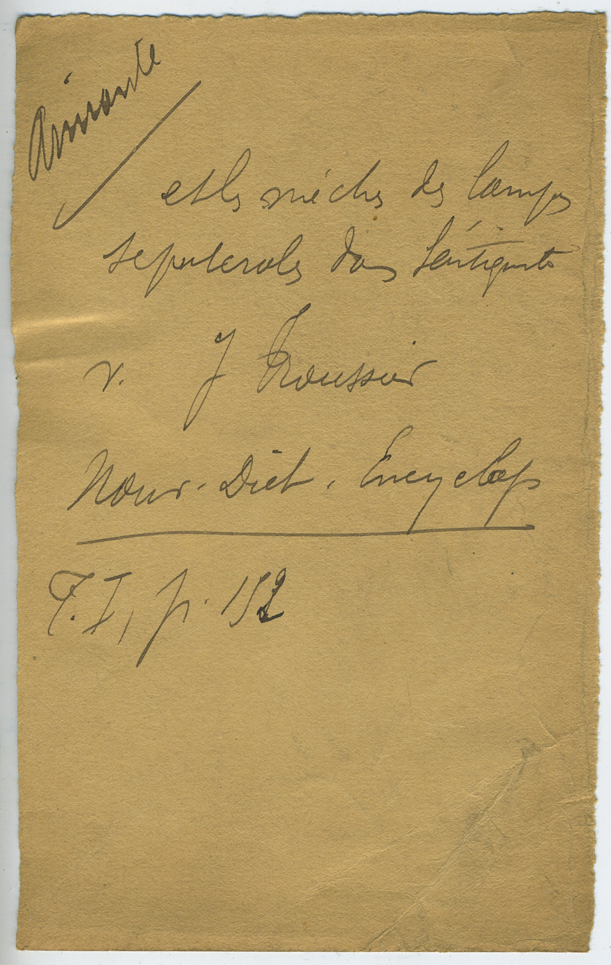 Amiante
et les mèches des lampes
sepulcrales dans l'antiquité
v. J Trousset
Nouv. Dict. Encyclop
T. I, p. 152